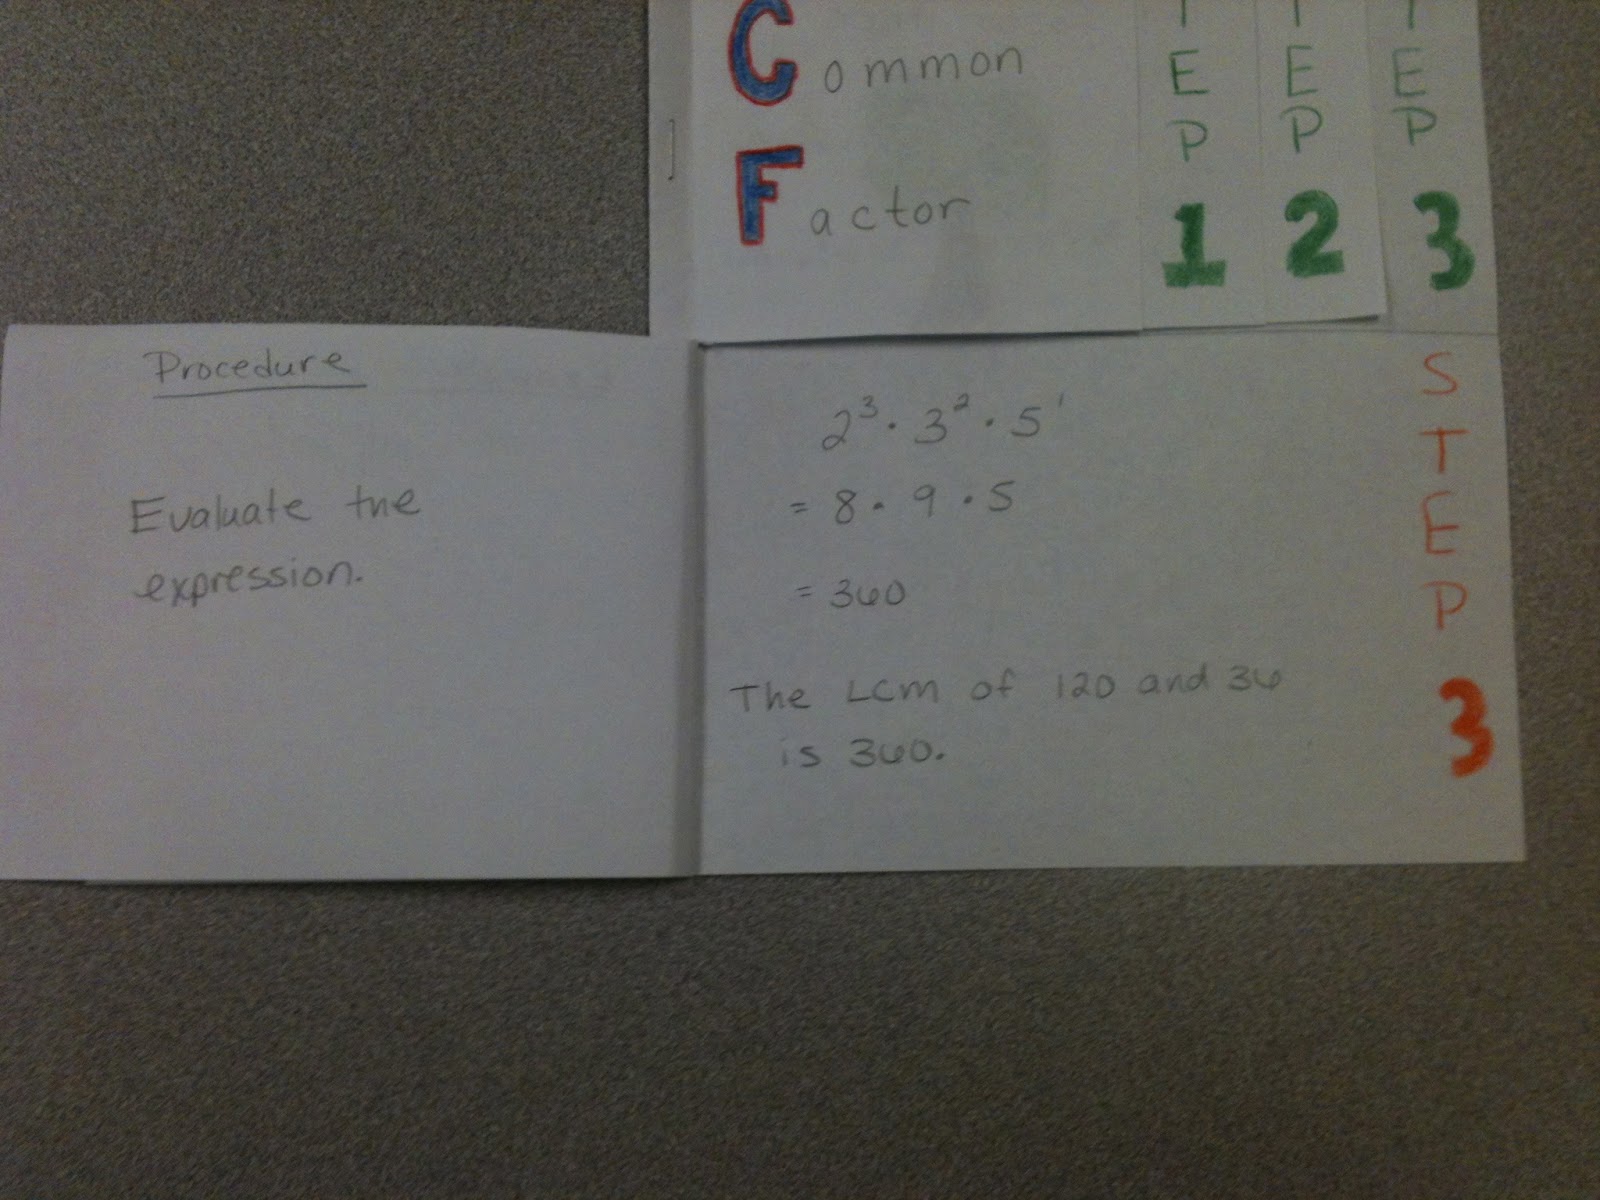 Common
Factor
TEP 1
TEP 2
TEP 3
Procedure
Evaluate the
expression.
2³ · 3² · 5¹
= 8 · 9 · 5
= 360
The LCM of 120 and 36
is 360.
STEP 3